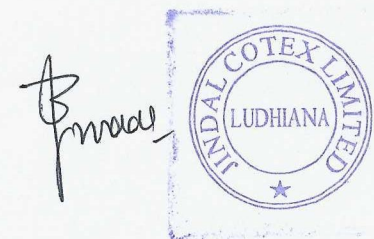 JINDAL COTEX LIMITED
LUDHIANA